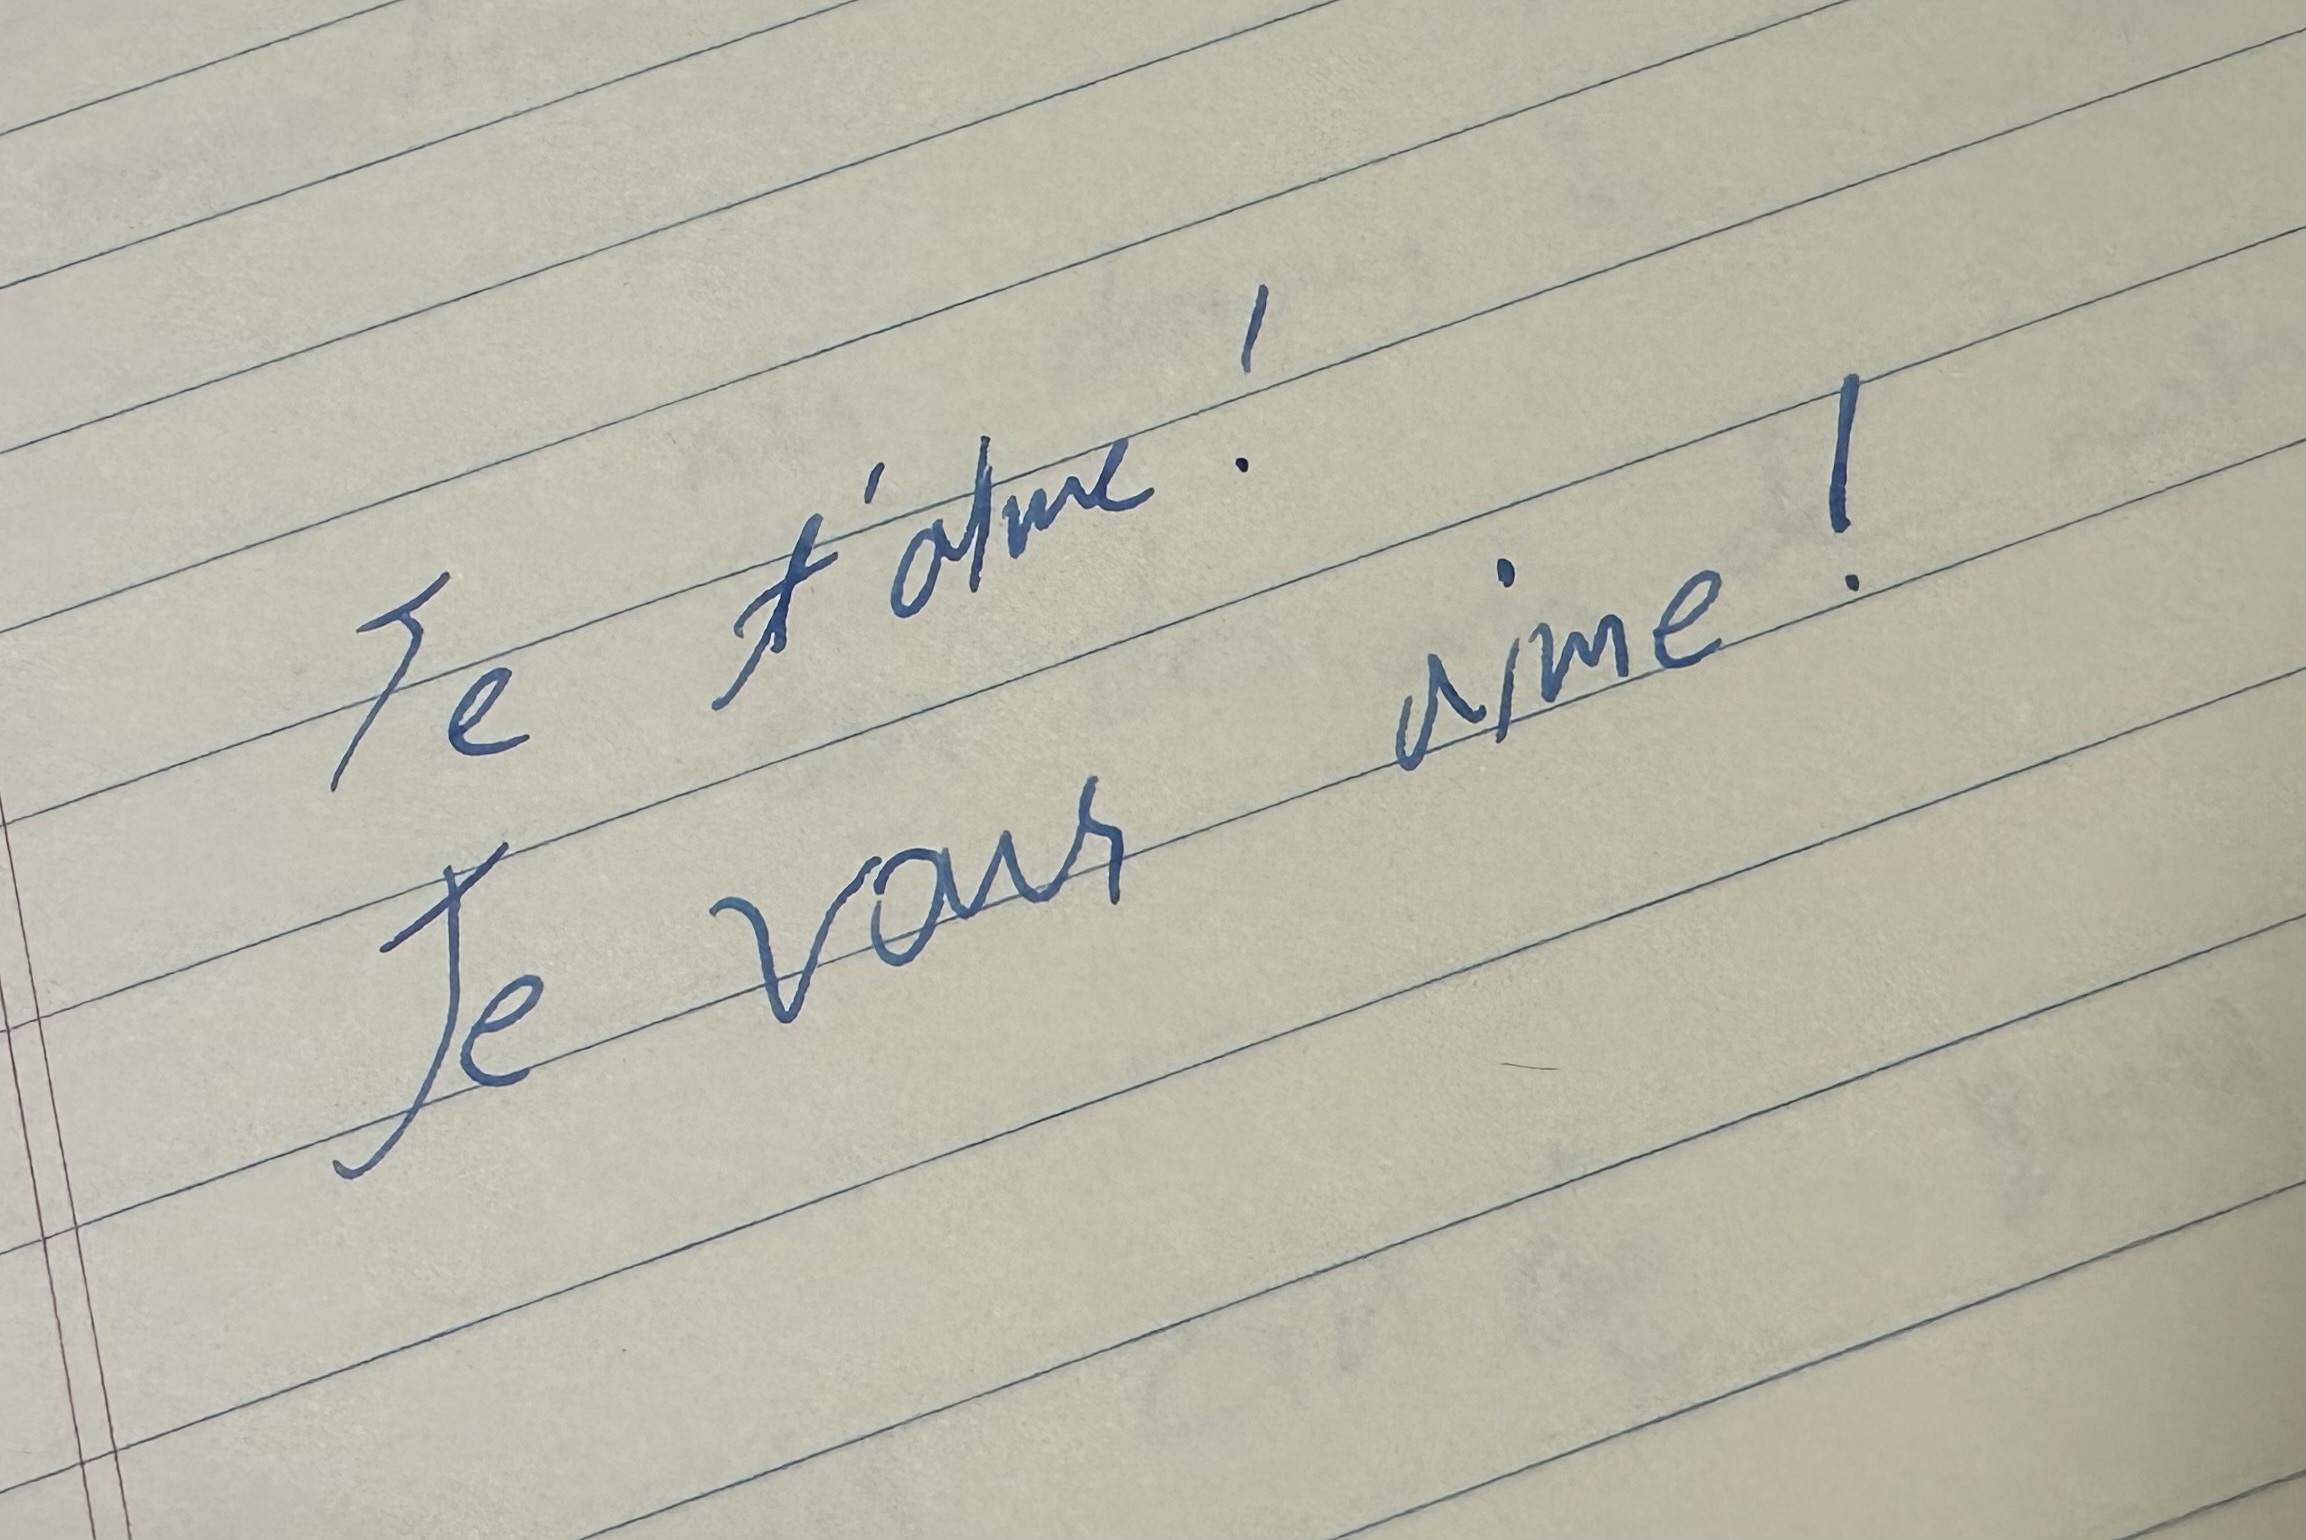 Je t'aime !
Je vous aime !